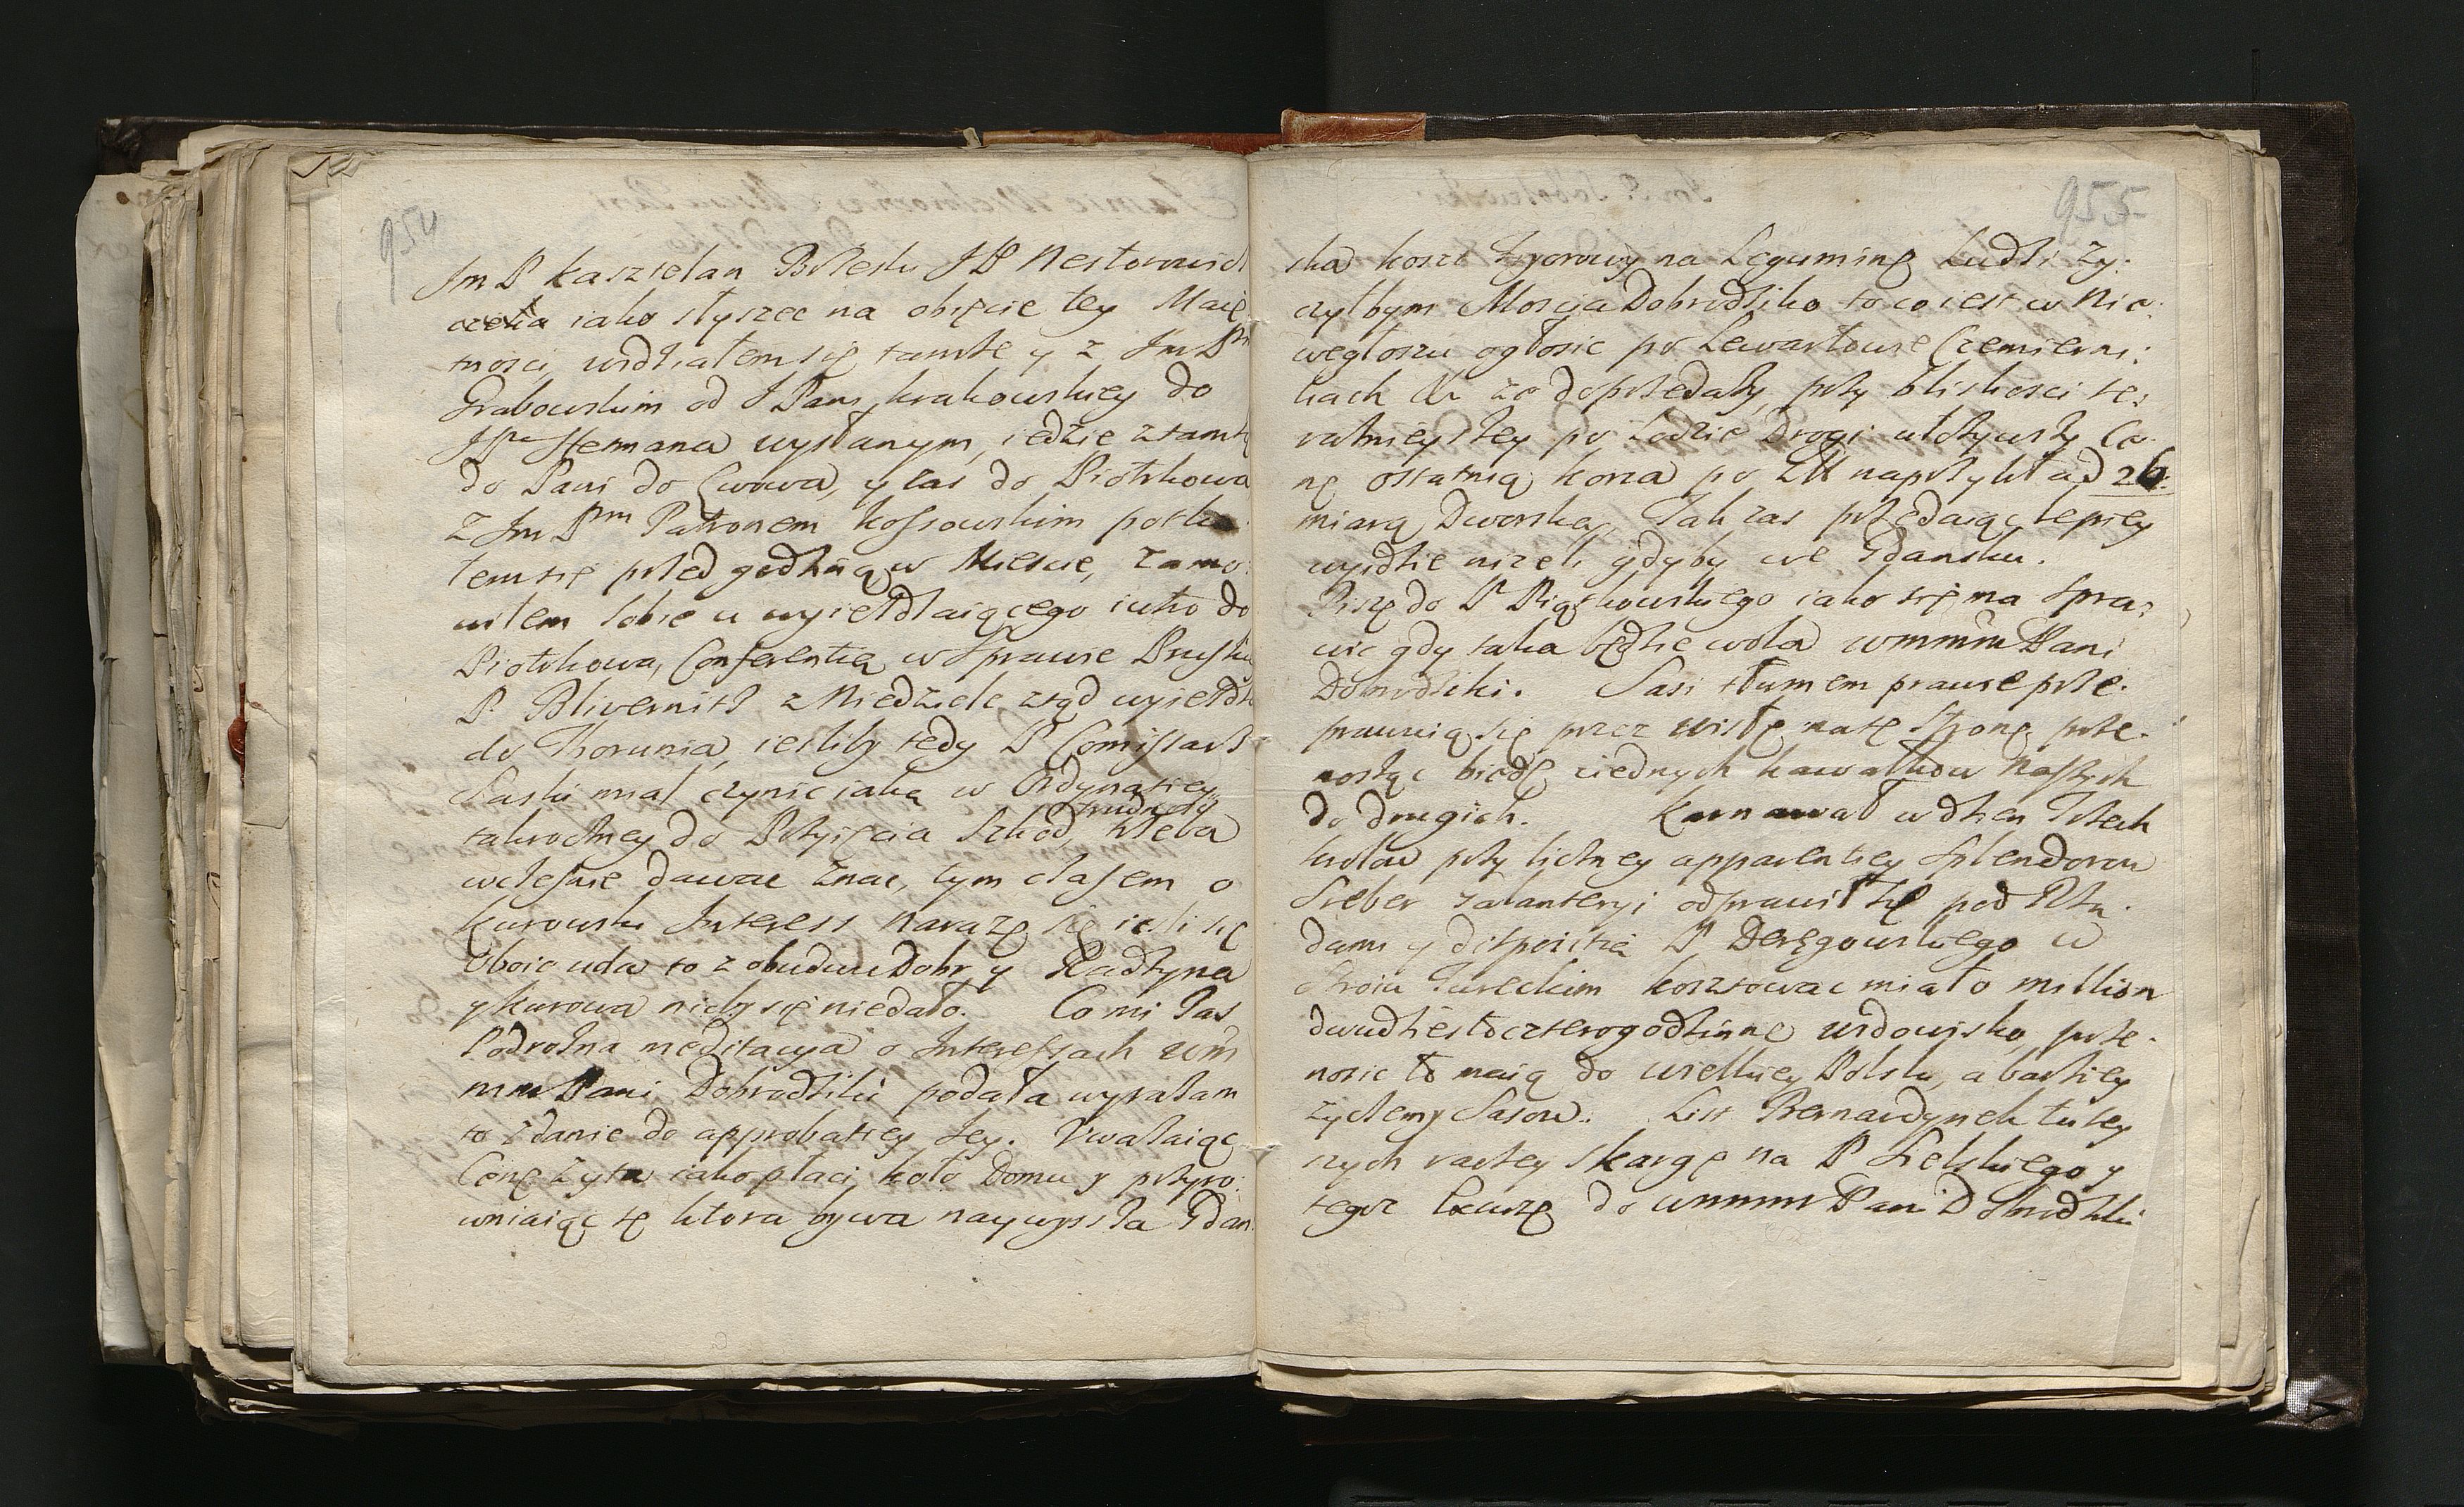 954
Im P Kasztelan Brzeski JP Nestorowicz
czeka iako słyszec na obięcie tey Maię
tnosci, widziałem się tamże y z Im Pm
Grabowskim od J Pani krakowskiey do
JPa Hetmana wysłanym, iedzie ztamtą
do Pani do Lwowa, y zas do Piotrkowa
Z Im Pm Patronem Kossowskim potka
łem się przed godziną w Miescie, zamo:
wiłem sobie u wyiezdzaiącego iutro do
Piotrkowa, Conferentią w Sprawie Pruski
P. Blivernitz z Niedziele ztąd wyiezdz
do Thorunia, iesliby tedy P Comissarz
Saski miał czynic iaką w Ordynatiey
trudnosc
takroczney do Przyięcia Szkod, trzeba
wczesnie dawac znac, tym czasem o
Kurowski Interess narażę się iesli się
Oboie uda to z obudwu Dobr y Radzyna
y Kurowa nicby się niedało. Co mi zas
Podrożna meditacya o Interessach wm
mm Pani Dobrodziki podała wyrażam
to zdanie do approbatiey Jey. Uważaiąc
Cenę Żyta iako płacą koło Domu y przyro:
wniaiąc tę ktora bywa naywyższa Gdan:
955
ska koszt Zyorowy na Leguminę Ludzi ży:
czyłbym Moscia Dobrodziko to co iest w Nie:
wegłoszu ogłosic po Lewartowie Czemierni:
kach &c ze do przedazy, przy bliskosci te:
raznieyszey po Lodzie Drogi ułożywszy Ce:
nę ostatnią korca po Zł naprzykład 26.
miarą Dworską, Tak zas przedaiąc lepiey
wyidzie niżeli gdyby we Gdansku.
Piszę do P Piąskowskiego iako się ma spra:
wic gdy taka będzie wola wmmm Pani
Dobrodziki. Sasi tłumem prawie prze:
prawuią się przez wisłę na tę stronę prze:
nosząc biedę z iednych kawałkow naszych
do drugich. Karnawał w dzien Trzech
krolow przy liczney apparentiey splendorow
Sreber galanteryi odprawił się pod Rzą:
dami y dispositią P Deręgowskiego w
stroiu Tureckim kosztowac miało million
dwudziestoczterogodzinne widowisko, prze:
nosic to maią do wielkiey Polski, a barziey
życzemy Sasow. List Bernardynek tutey
szych raczey skargę na P Sielskiego y
tegoż Excuzę do wmmm Pani Dobrodziki